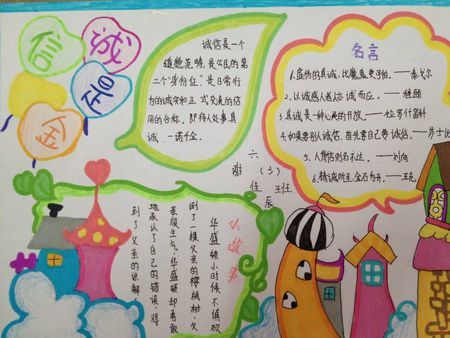 诚
信
是
金
诚信是一个
道德范畴,是公民的第
二个"身份证",是日常行
为的诚实和正式交流的信
用的合称。即待人处事真
诚、一诺千金。
名言
1.虚伪的真诚,比魔鬼更可怕。——泰戈尔
2.以诚感人者,人亦诚而应。——程颐
3.真诚是一种心灵的开放。——拉罗什富科
4.如果要别人诚信,首先要自己诚信。——莎士比
5.人背信则名不达。——刘向
6.精诚所至,金石为开。——王充
六(3)班
谢佳辰
小故事
华盛顿小时候不慎砍
倒了一棵父亲的樱桃树,父
亲很生气,华盛顿却勇敢
地承认了自己的错误,得
到了父亲的谅解。